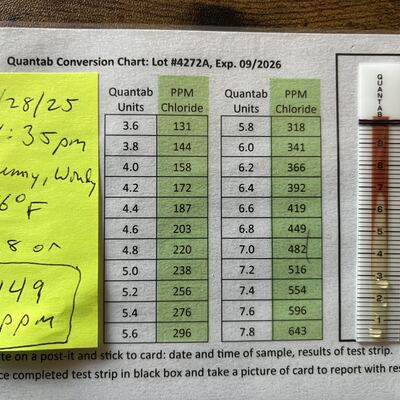 Quantab Conversion Chart: Lot #4272A, Exp. 09/2026
/28/25
:35pm
nny, Windy
6° F
8 on
449
ppm
Quantab Units PPM Chloride Quantab Units PPM Chloride
3.6 131 5.8 318
3.8 144 6.0 341
4.0 158 6.2 366
4.2 172 6.4 392
4.4 187 6.6 419
4.6 203 6.8 449
4.8 220 7.0 482
5.0 238 7.2 516
5.2 256 7.4 554
5.4 276 7.6 596
5.6 296 7.8 643
QUANTAB
8
7
6
5
4
3
2
1
te on a post-it and stick to card: date and time of sample, results of test strip.
ce completed test strip in black box and take a picture of card to report with res